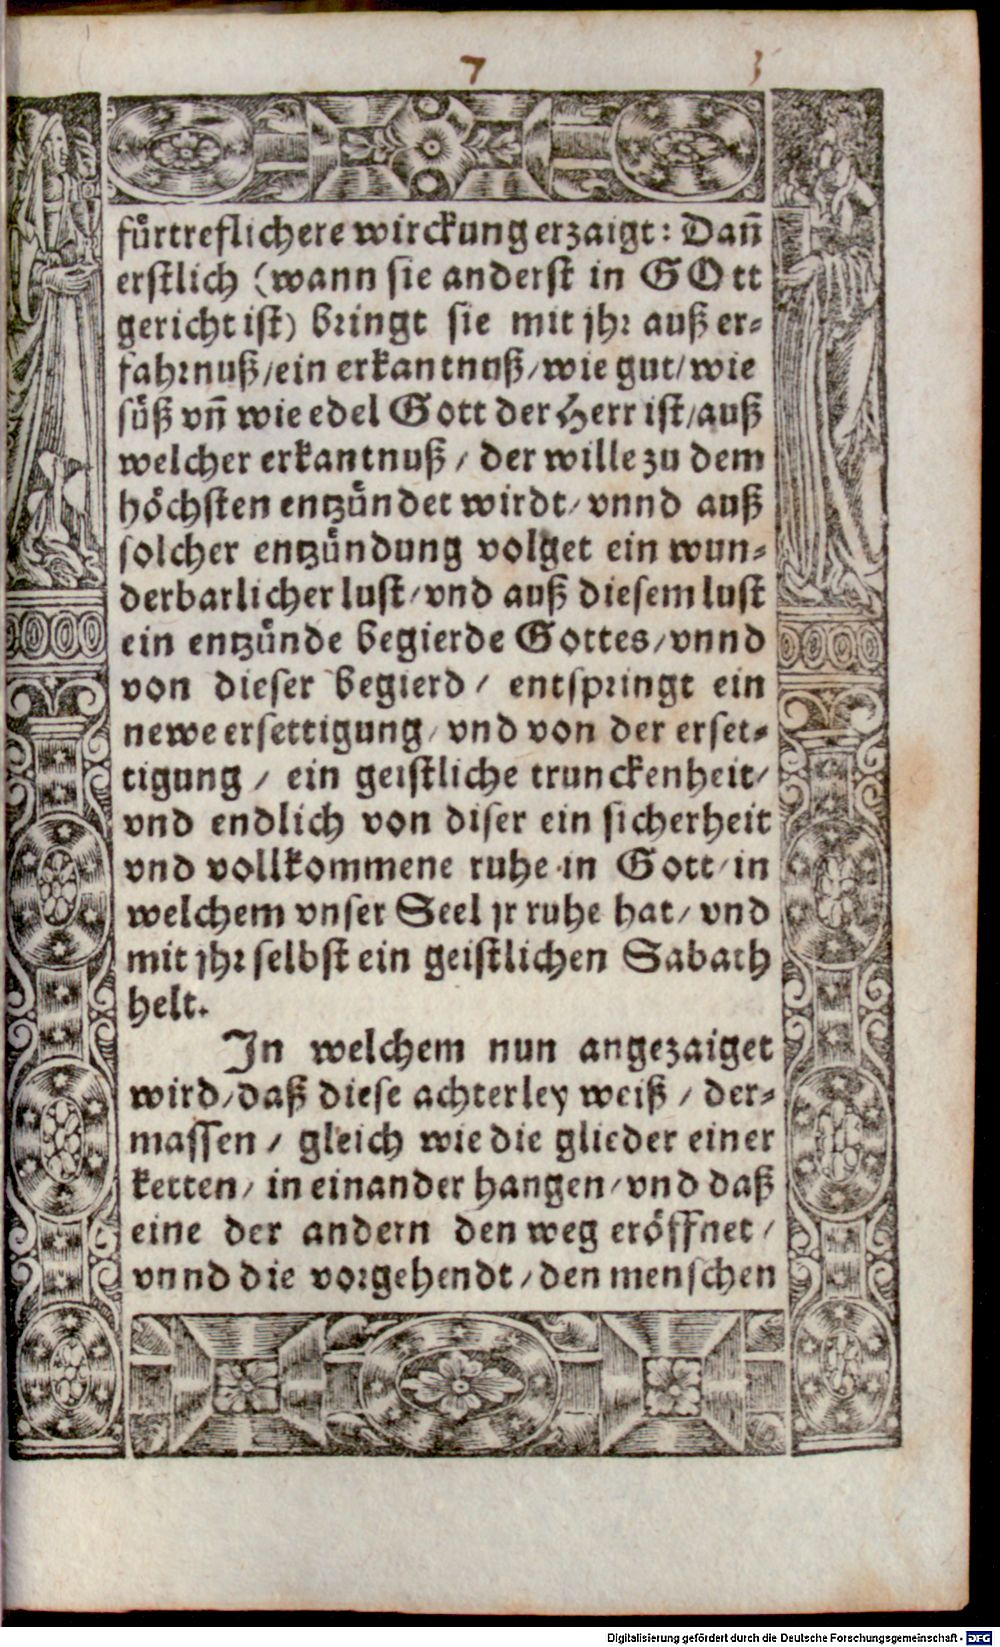 7 3
fürtreflichere wirckung erzaigt: Dañ
erstlich (wann sie anderst in GOtt
gericht ist) bringt sie mit jhr auß er-
fahrnuß/ein erkantnuß/wie gut/wie
süß vñ wie edel Gott der Herr ist/auß
welcher erkantnuß/ der wille zu dem
höchsten entzündet wirdt/vnnd auß
solcher entzündung volget ein wun-
derbarlicher lust/vnd auß diesem lust
ein entzünde begierde Gottes/vnnd
von dieser begierd/ entspringt ein
newe ersettigung/vnd von der erset-
tigung/ ein geistliche trunckenheit/
vnd endlich von diser ein sicherheit
vnd vollkommene ruhe in Gott/in
welchem vnser Seel jr ruhe hat/vnd
mit jhr selbst ein geistlichen Sabath
helt.
In welchem nun angezaiget
wird/daß diese achterley weiß/ der-
massen/ gleich wie die glieder einer
ketten/ in einander hangen/vnd daß
eine der andern den weg eröffnet/
vnnd die vorgehendt/den menschen
Digitalisierung gefördert durch die Deutsche Forschungsgemeinschaft - DFG